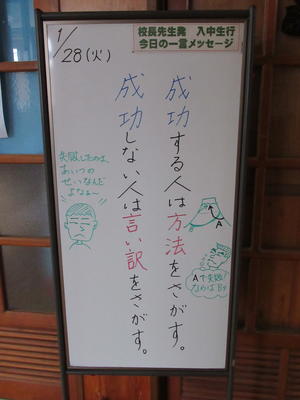 校長先生発 入中生行
今日の一言メッセージ
1/28(火)
成功する人は方法をさがす。
成功しない人は言い訳をさがす。
A
A
Aで失敗?
ならばBや
失敗したのは、
あいつの
せいなんだ
よなぁ〜